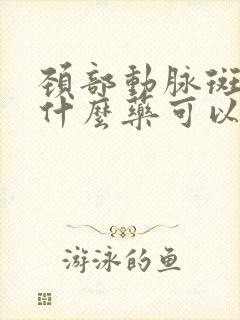 頚部動脉斑
什麼藥可以
游泳的鱼